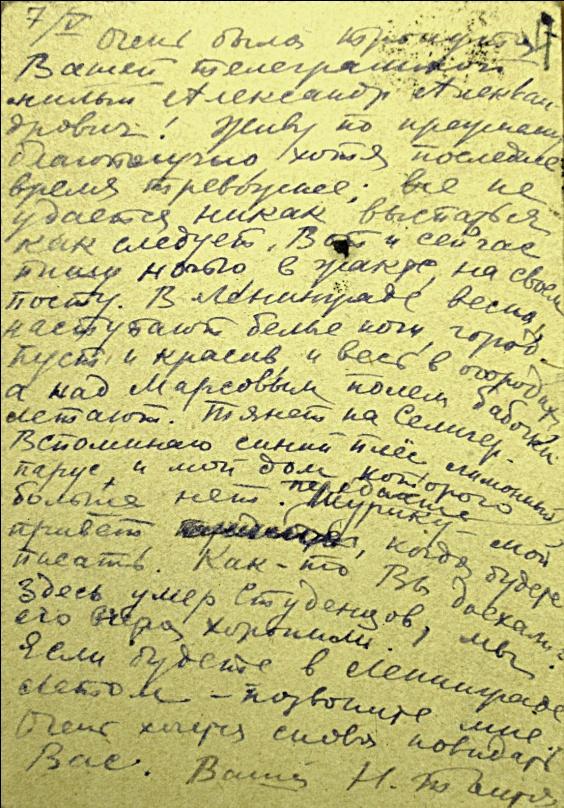 7/V 4
Очень была тронута
Вашей телеграммой
милый Александр Алексан-
дрович! Живу по прежнему
благополучно хотя последнее
время тревожнее; все не
удается никак выспаться
как следует. Вот и сейчас
пишу ночью в жакте, на своем
посту. В Ленинграде весна,
наступают белые ночи, город
пуст и красив и весь в огородах
а над Марсовым полем бабочки
летают. Тянет на Селигер.
Вспоминаю синий плёс лимонный
парус и мой дом которого
больше нет. передайте
Шурику мой
привет, когда будете
писать. Как-то Вы доехали?
Здесь умер Студенцов, мы
его вчера хоронили.
Если будете в Ленинграде
летом – позвоните мне.
Очень хочется снова повидать
Вас. Ваша Н.